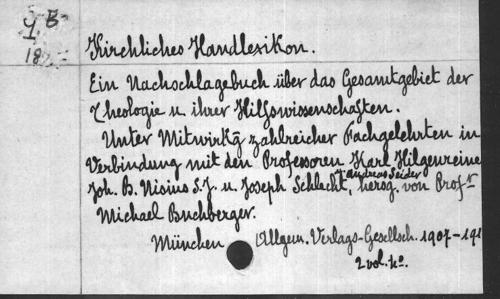 B
I
18
Kirchliches Handlexikon.
Ein Nachschlagebuch über das Gesamtgebiet der
Theologie u. ihrer Hilfswissenschaften.
Unter Mitwirkg zahlreicher Fachgelehrten in
Verbindung mit den Professoren Karl Hilgenreine
Joh. B. Nisius S.J. u. Joseph Schlecht, hersg. von Profr
Andreas Seider
Michael Buchberger.
München Allgem. Verlags-Gesellsch. 1907-191
2 vol. 4o.